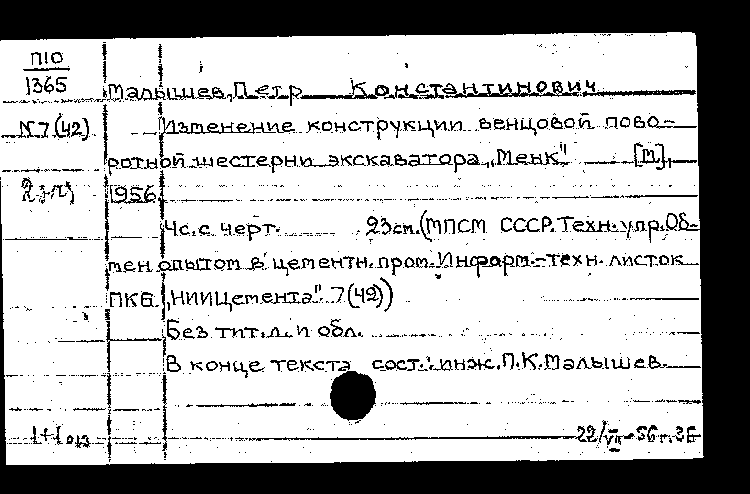 П10
1365
Малышев, Петр Константинович
N7(42)
Изменение конструкции венцовой пово-
ротной шестерни экскаватора „Менк" [М],
1956.
4с. с черт. 23см. (МПСМ СССР. Техн. упр. Об-
мен опытом в цементн. пром. Информ.-техн. листок
ПКБ „НИИЦемента". 7(42))
Без тит. л. и обл.
В конце текста сост.: инж. П.К. Малышев.
1+1
22/VII-56г.